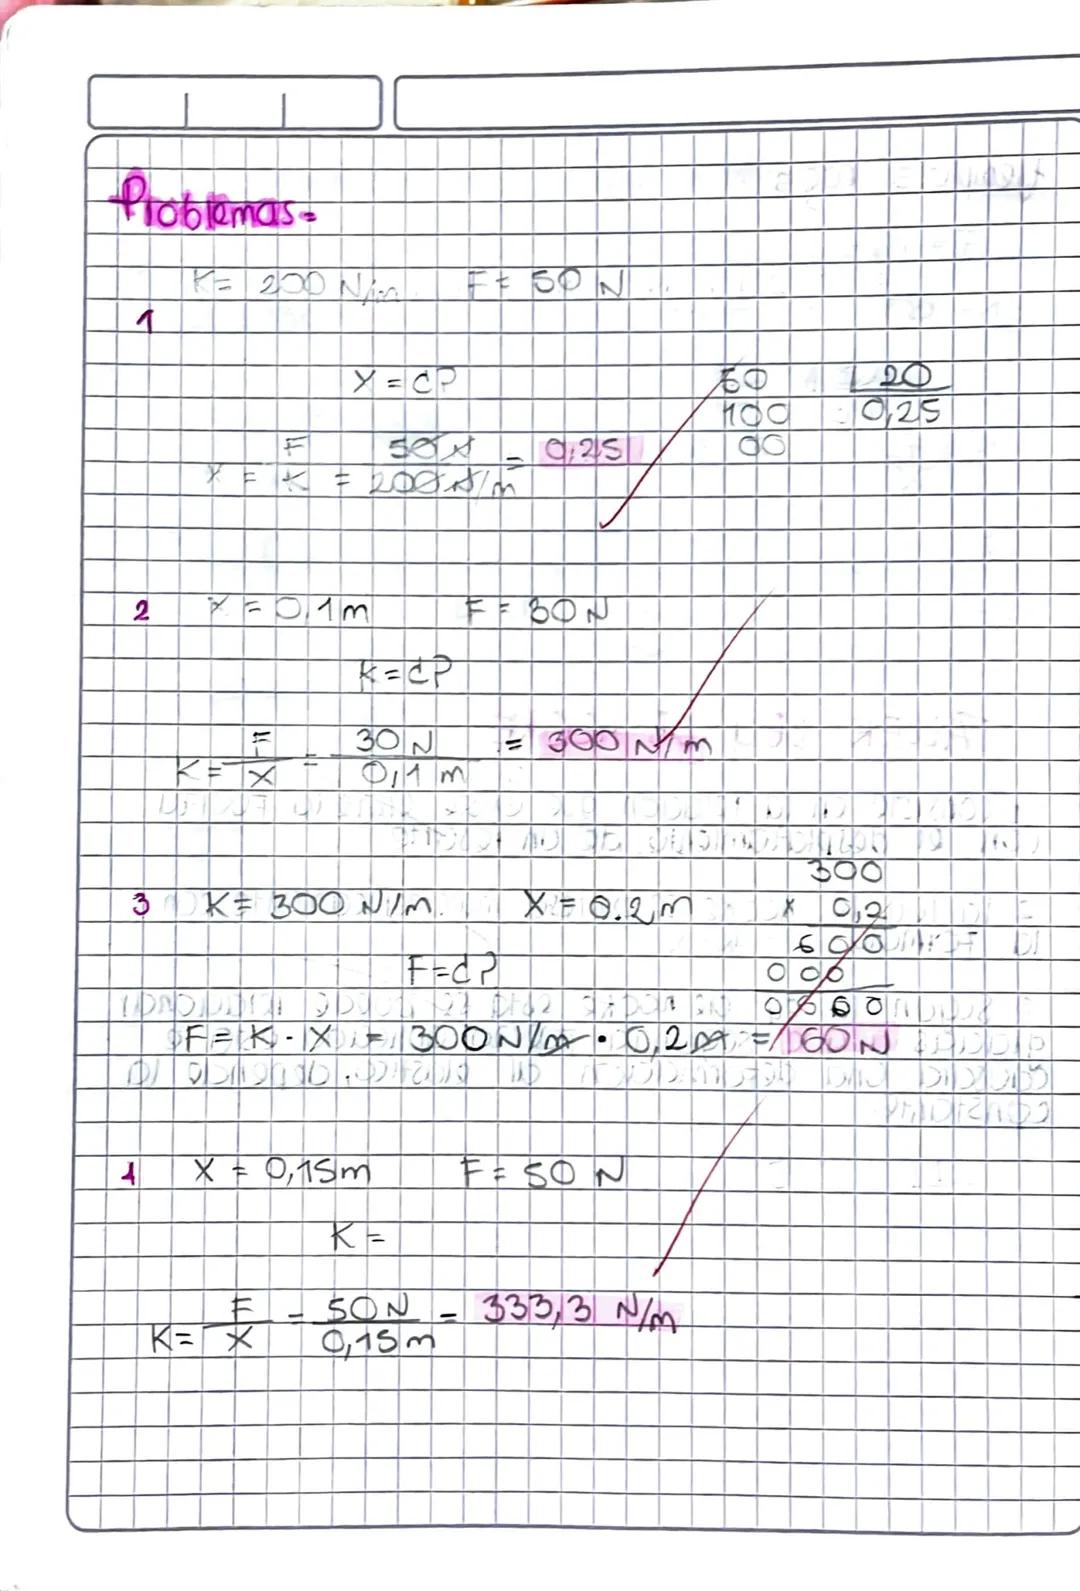 Problemas-
K = 200 N/m F = 50 N
1
X = ¿?
50 20
100 0,25
00
X = F/K = 50N/200N/m = 0,25
2 X = 0,1m F = 30N
K = ¿?
K = F/X = 30 N/0,1 m = 300 N/m
3 K = 300 N/m. X = 0.2m
300
x 0,2
600
000
0600
F = ¿?
F = K · X = 300 N/m · 0,2m = 60 N
4 X = 0,15m F = 50 N
K =
K = F/X = 50N/0,15m = 333,3 N/m